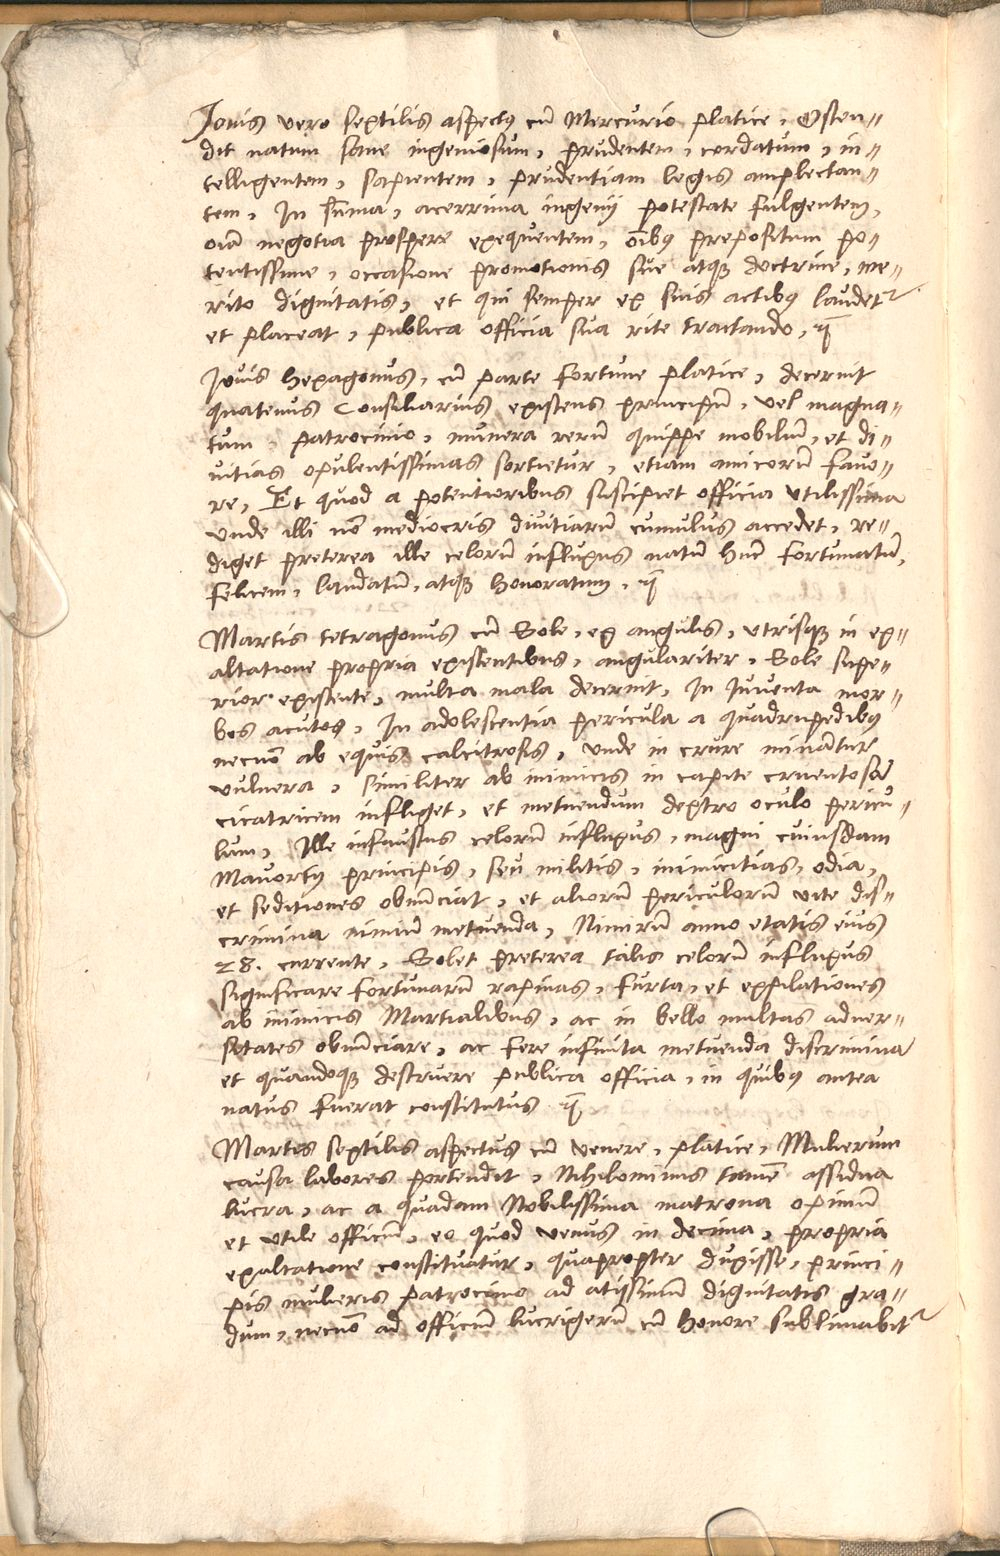 Jovis vero sextilis aspectꝯ cū Mercurio platice, Osten=
dit natum sane ingeniosum, prudentem, cordatum, in=
telligentem, sapientem, prudentiam legis amplectan=
tem, In sūma, acerrima ingenij potestate fulgentem,
oīa negotia prospere exequentem, oībꝯ prepositum po=
tentissime, occasione promotionis sue atqꝫ doctrine, me=
rito dignitatis, et qui semper ex suis actibꝯ laudetr
et placeat, publica officia sua rite tractando,
Jovis hexagonus, cū parte fortune platice, decernit
quatenus Consiliarius existens principū, vel magna=
tum, patrocinio, munera rerū quippe mobiliū, et di=
uitias opulentissimas sortietur, etiam amicorū fauo=
re, Et quod a potentioribus suscipiet officia vtilissima
vnde illi nō mediocris diuitiarū cumulus accedet, re=
diget preterea ille celorū influxus natū hūc fortunatū,
felicem, laudatū, atqꝫ honoratum,
Martis tetragonus cū Sole, ex angulis, vtrisqꝫ in ex=
altatione propria existentibus, angulariter, Sole supe=
rior existente, multa mala decernit, In Juuenta mor=
bos acutos, In adolescentia pericula a quadrupedibꝯ
necnō ab equis calcitrosis, vnde in crure minātur
vulnera, similiter ab inimicis in capite cruentosā
cicatricem infliget, et metuendum dextro oculo pericu=
lum, Ille infaustus celorū influxus, magni cuiusdam
Mauortij principis, seu militis, inimicitias, odia,
et seditiones obnūciat, et aliorū periculorū vite dis=
crimina nimiū metuenda, Nimirū anno etatis eius
28. currente, Solet preterea talis celorū influxus
significare fortunarū rapinas, furta, et expilationes
ab inimicis Martialibus, ac in bello multas aduer=
sitates obnūciare, ac fere infinita metuenda discrimina
et quandoqꝫ destruere publica officia, in quibꝯ antea
natus fuerat constitutus
Martis sextilis aspectus cū venere, platice, Mulierum
causa labores portendit, Nihilominus tamē assidua
lucra, ac a quadam Nobilissima matrona opimū
et vtile officiū, eo quod venus in decima, propria
exaltatione constituatur, quapropter duxisse, princi=
pis mulieris patrocinio ad altissimū dignitatis gra=
dum, necnō ad officiū lucrigerū cū honore sublimabitr